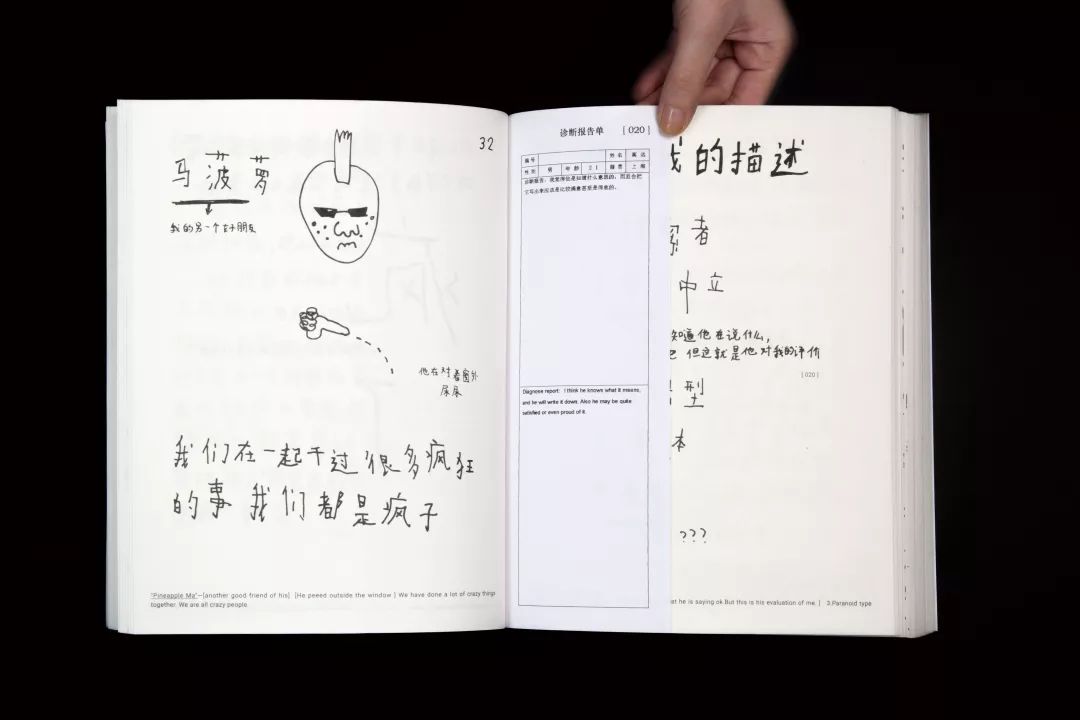 32
马菠萝
我的另一个好朋友
他在对着窗外
尿尿
我们在一起干过很多疯狂
的事 我们都是疯子
"Pineapple Ma"—[another good friend of his] [He peeed outside the window ] We have done a lot of crazy things
together. We are all crazy people.
诊断报告单 [020]
编号 姓名
性别 男 年龄 21 籍贯 上海
诊断报告：我觉得他是知道什么意思的，而且会把
它写出来应该是比较满意甚至是得意的。
Diagnose report: I think he knows what it means,
and he will write it down. Also he may be quite
satisfied or even proud of it.
我的描述
者
中立
知道他在说什么，
吧 但这就是他对我的评价
[020]
型
本
???
at he is saying ok.But this is his evaluation of me. ] 3.Paranoid type